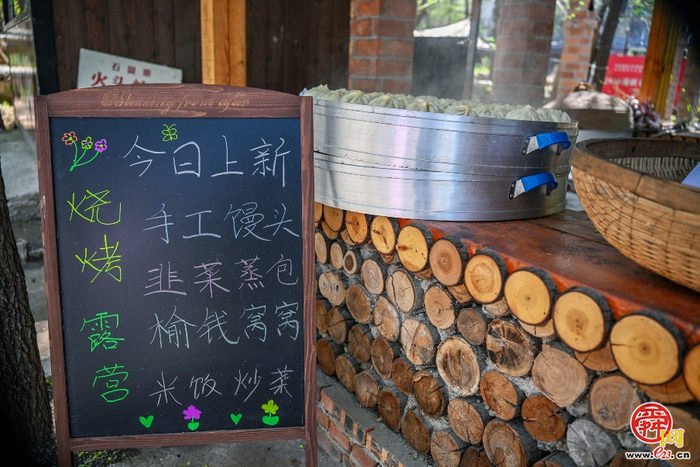 Blessing from eyes
今日上新
手工馒头
韭菜蒸包
榆钱窝窝
米饭 炒菜
烧烤
露营
舜网
www.e23.cn